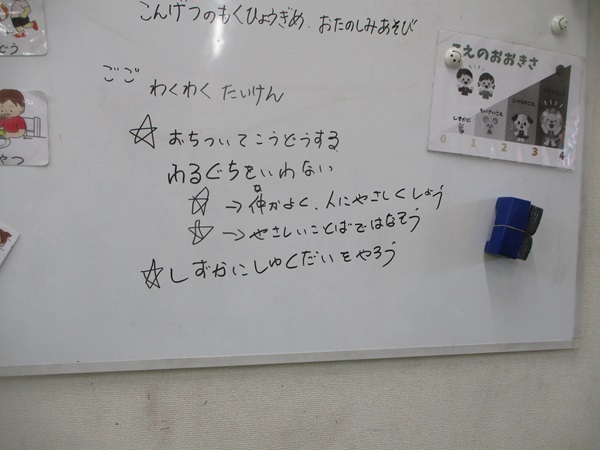 こんげつのもくひょうぎめ、おたのしみあそび
ごご
わくわく たいけん
☆ おちついてこうどうする
わるぐちをいわない
☆ →仲がよく、人にやさしくしよう
☆ →やさしいことばではなそう
☆ しずかにしゅくだいをやろう
こえのおおきさ
0 1 2 3 4
どう
やつ